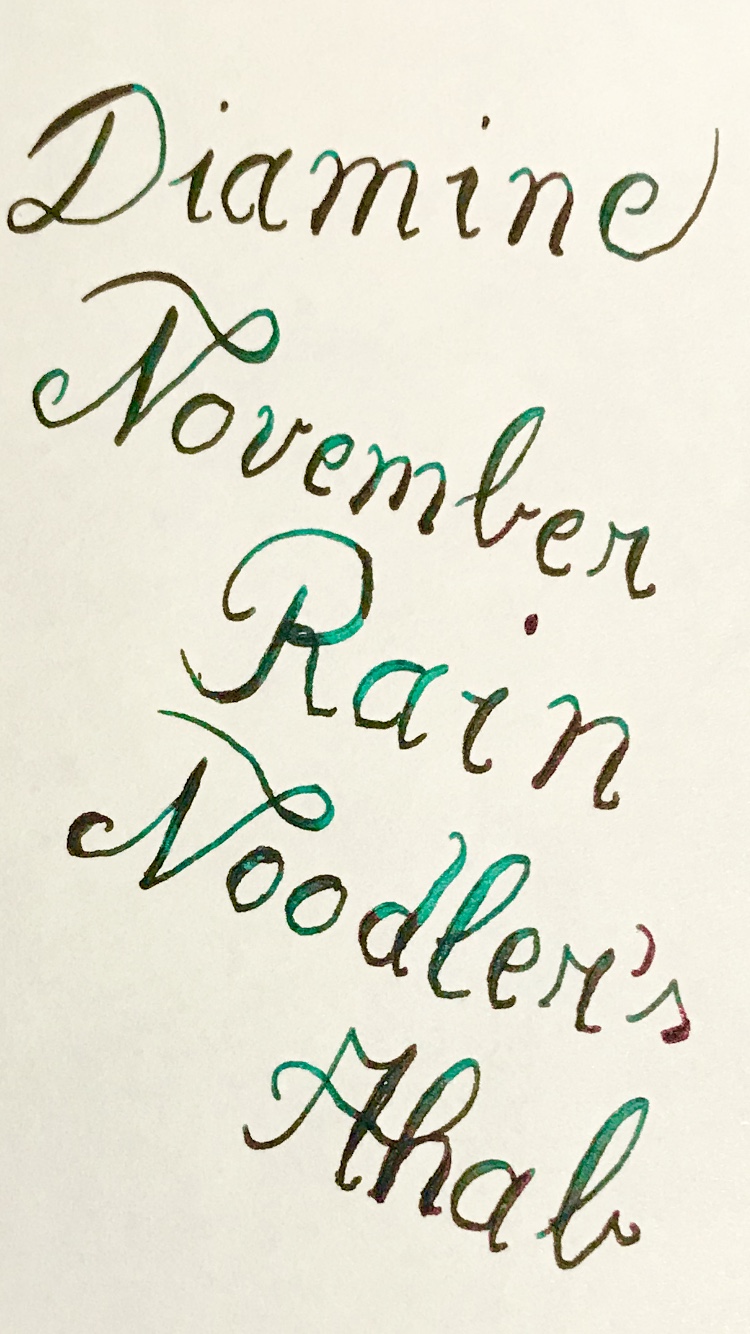 Diamine
November
Rain
Noodler's
Ahab